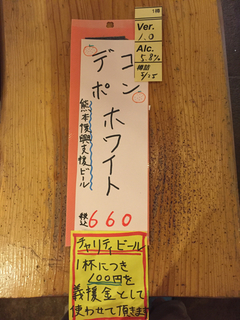 1種
Ver.
1.0
Alc.
5.8%
樽詰
3/15
デコポン
ホワイト
熊本復興支援ビール
税込
660
チャリティビール
1杯につき
100円を
義援金として
使わせて頂きます